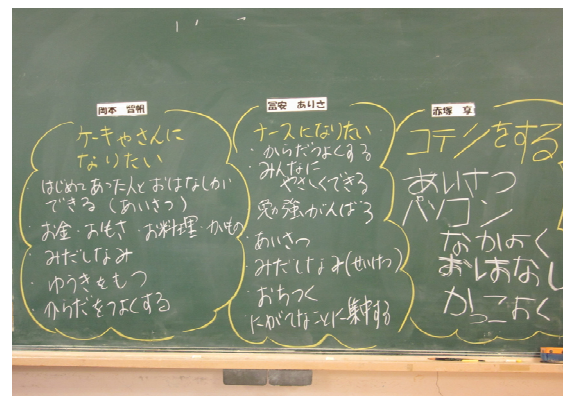 岡本 賢帆
ケーキやさんに
なりたい
はじめてあった人とおはなしが
できる(あいさつ)
お金・おもさ・お料理・かもの
みだしなみ
ゆうきをもつ
からだをつよくする
冨安 ありさ
ナースになりたい
・からだつよくする
・みんなに
やさしくできる
勉強がんばろ
・あいさつ
・みだしなみ(せいけつ)
・おちつく
・にがてなことに集中する
赤塚 享
コテンをする
あいさつ
パソコン
なかよく
おはなし
かっこよく